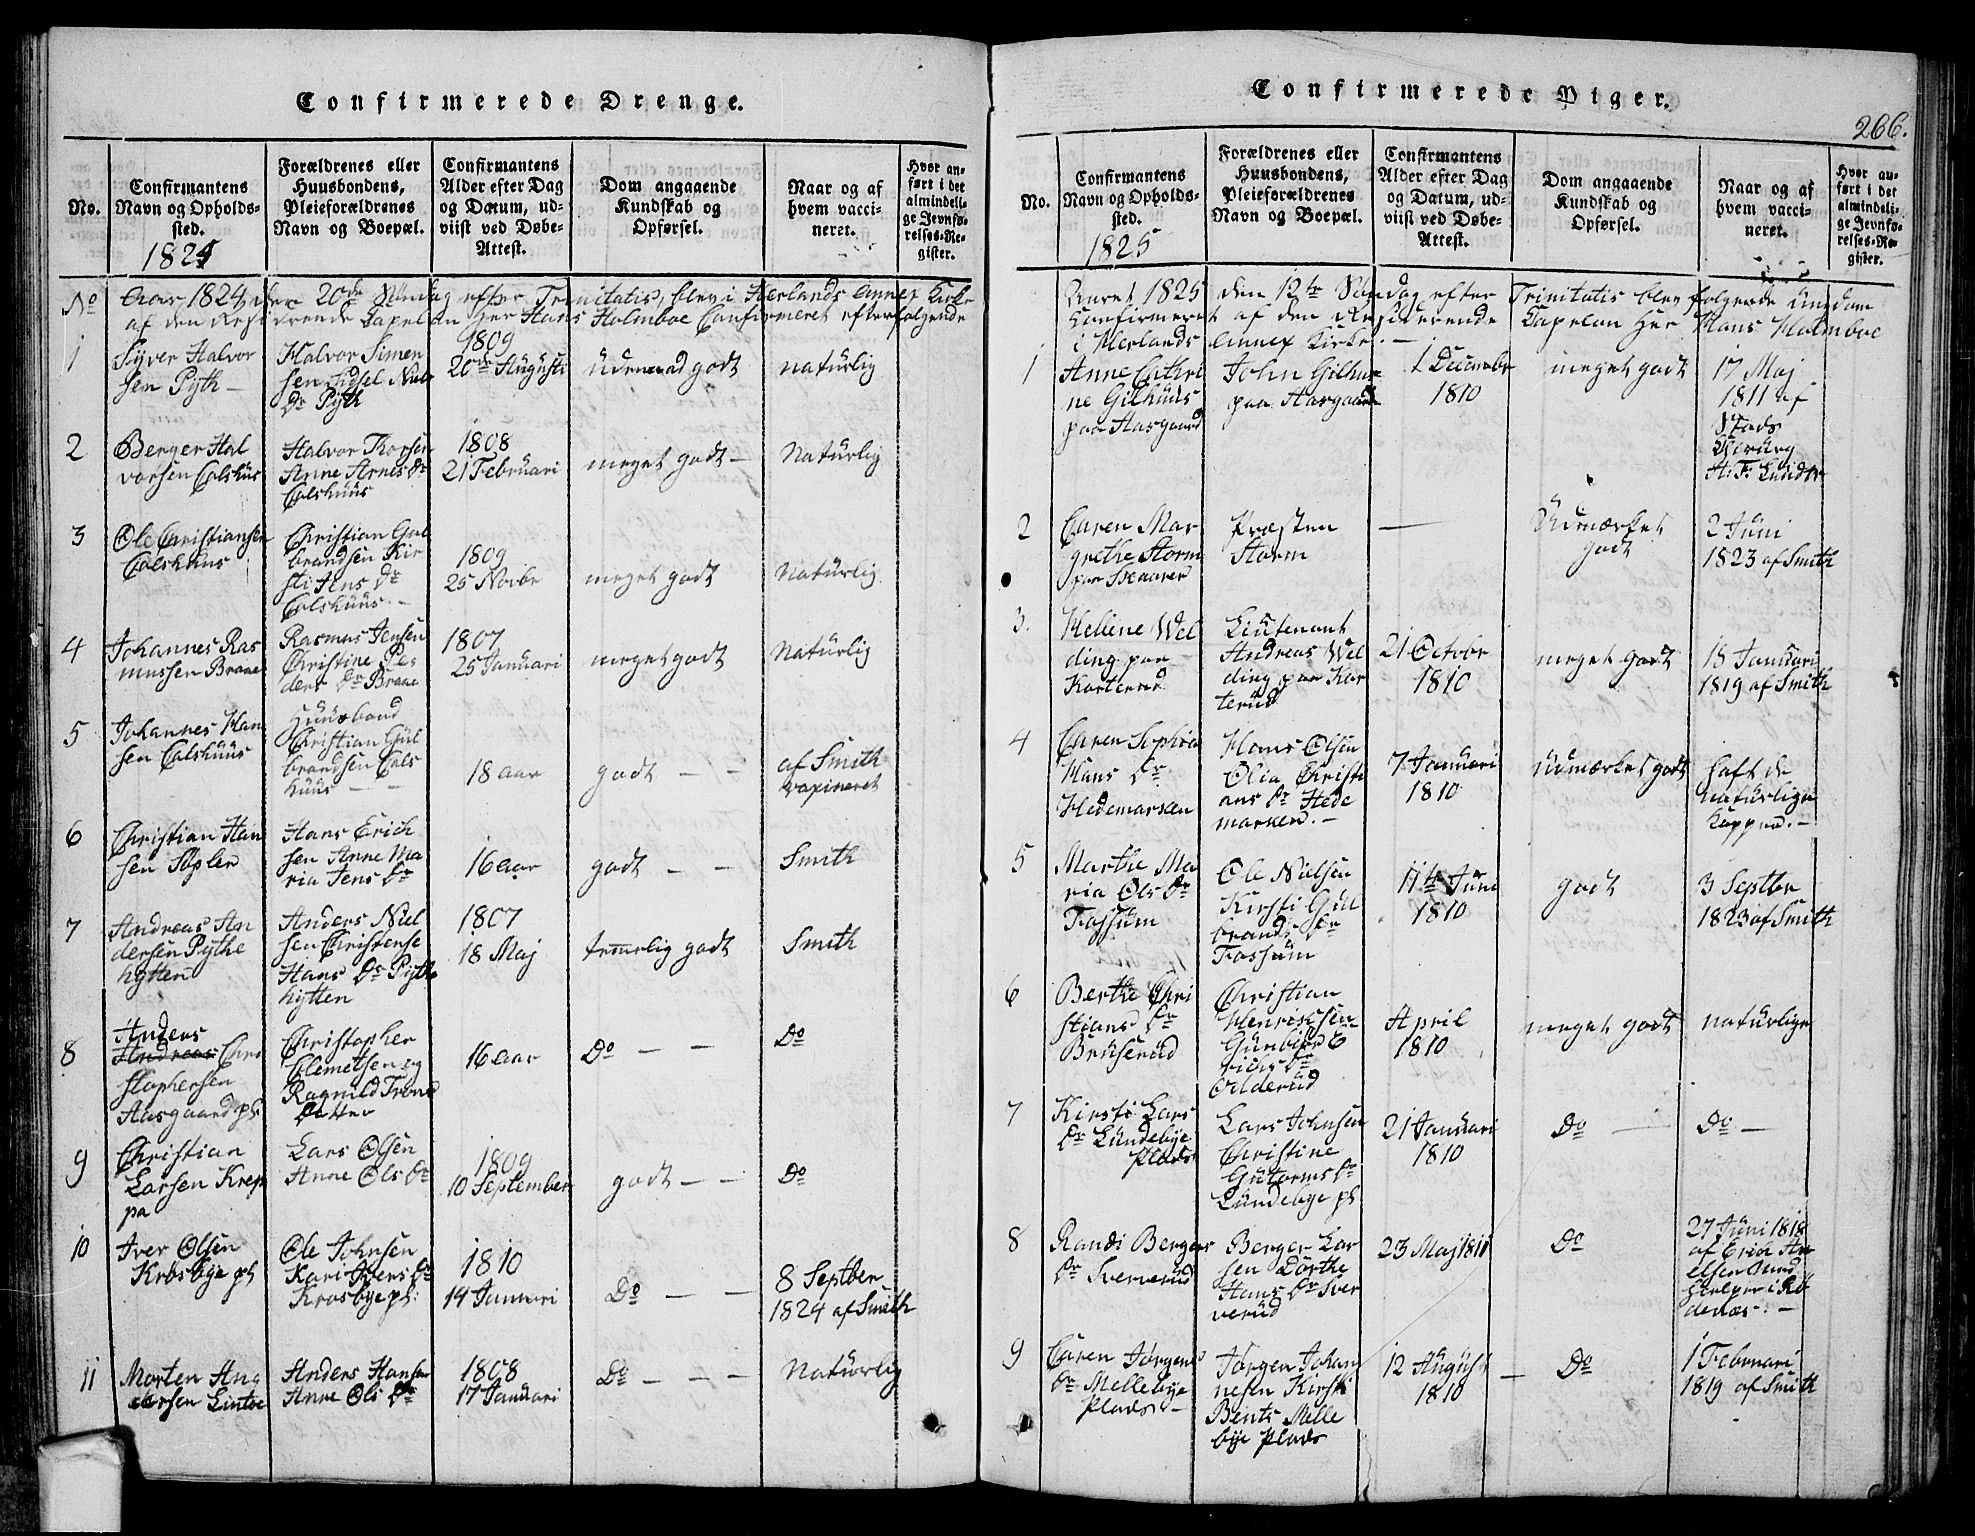 Confirmerede Drenge.
No.
Confirmantens
Navn og Opholds-
sted.
1824
Forældrenes eller
Huusbondens,
Pleieforældrenes
Navn og Boepæl.
Confirmantens
Alder efter Dag
og Datum, ud-
viist ved Døbe-
Attest.
Dom angaaende
Kundskab og
Opførsel.
Naar og af
hvem vacci-
neret.
Hvor an-
ført i det
almindeli-
ge Jevnfø-
relses-Re-
gister.
No Aar 1824 den 20de Søndag efter Trinitatis, blev i Herlands Annex Kirke
af den Residerende Capelan Her Hans Holmboe Confirmeret efterfølgende
1
Syver Halvor
sen Pyth
Halvor Simen
sen Sidsel Niels
Dr Pyth
1809
20de Augusti
Udmerket godt
naturlig
2
Berger Hal
vorsen Colshuus
Halvor Thorsen
Anne Arnes Dr
Colshuus
1808
21 Februari
meget godt —
Naturlig
3
Ole Christiansen
Colshuus
Christian Gul
brandsen Kir
sti Ans Dr
Colshuus. —
1809
25 Novbr
meget godt
Naturlig
4
Johannes Ras
mussen Braae
Rasmus Jensen
Christine Pe
ders Dr Braae
1807
25 Januari
meget godt
Naturlig
5
Johannes Han
sen Colshuus
Huusbond
Christian Gul
brandsen Cols
huus —
18 aar
godt — —
af Smith
vaxineret
6
Christian Han
sen Søpler
Hans Erich
sen Anne Ma
ria Jens Dr
16 aar
godt — —
Smith
7
Andreas An
dersen Pythe
hytten
Anders Niel
sen Christense
Hans Dr Pythe
hytten
1807
18 Maj
temmelig godt
Smith
8
Anders
Andreas Chri
stophersen
Aasgaard pl
Christopher
Clemetsen og
Ragnild Trons
Datter
16 aar
Do — —
Do
9
Christian
Larsen Krep
pa
Lars Olsen
Anne Ols Dr
1809
10 September
godt — —
Do
10
Iver Olsen
Krosbye pl
Ole Johnsen
Kari Ivers Dr
Krosbye pl:
1810
14 Januari
Do — —
8 Septber
1824 af Smith
11
Morten An
dersen Lintoe
Anders Hansen
Anne Ols Dr
1808
17 Januari
Do — — —
Naturlig
Confirmerede Piger.
266.
No.
Confirmantens
Navn og Opholds-
sted.
1825
Forældrenes eller
Huusbondens,
Pleieforældrenes
Navn og Boepæl.
Confirmantens
Alder efter Dag
og Datum, ud-
viist ved Døbe-
Attest.
Dom angaaende
Kundskab og
Opførsel.
Naar og af
hvem vacci-
neret.
Hvor an-
ført i det
almindeli-
ge Jevnfø-
relses-Re-
gister.
Aaret 1825 den 12te Søndag efter Trinitatis blev følgende Ungdom
Confirmeret af den Residerende Capelan Her Hans Holmboe
i Herlands Annex Kirke. —
1
Anne Cathri
ne Gilhuus
paa Aasgaard
John Gilhuus
paa Aasgaard
1 December
1810
meget godt
17 Maj
1811 af
Stads
Chirurg
H: F: Lunder
2
Caren Mar
grethe Storm
paa
Præsten
Storm
—
Udmærket
godt
2 Juni
1823 af Smith
3.
Hellene Wel
ding paa
Karterud
Lieutenant
Andreas Wel
ding paa Kar
terud
21 Octobr
1810
meget godt
18 Januari
1819 af Smith
4
Caren Sophia
Hans Dr
Hedemarken
Hans Olsen
Olia Christi
ans Dr Hede
marken. —
7 Januari
1810
Udmærket godt
haft de
naturlige
Kopper. —
5
Marthe Ma
ria Ols Dr
Fossum
Ole Nielsen
Kirsti Gul
brands Dr
Fossum
11te Juni
1810
godt
3 Septbr
1823 af Smith
6
Berthe Chri
stians Dr
Bruserud
Christian
Henrichsen
Gunbior E
richs Dr
Olderud
April
1810
meget godt
naturlige
7
Kirsti Lars
Dr Lundebye
Plads
Lars Johnsen
Christine
Gutorms Dr
Lundebye pl
21 Januari
1810
Do —
Do —
8
Randi Berger
Dr Sververud
Berger Lar
sen Dorthe
Hans Dr Sver
verud
23 Maj 1811
Do
27 Juni 1818
af Erich An
elsen Med
hielper i Rø
denæs. —
9
Caren Jørgens
Dr Mellebye
Plads —
Jørgen Johan
nesen Kirsti
Bents Melle
bye Plads
12 August
1810
— Do
1 Februari
1819 af Smith